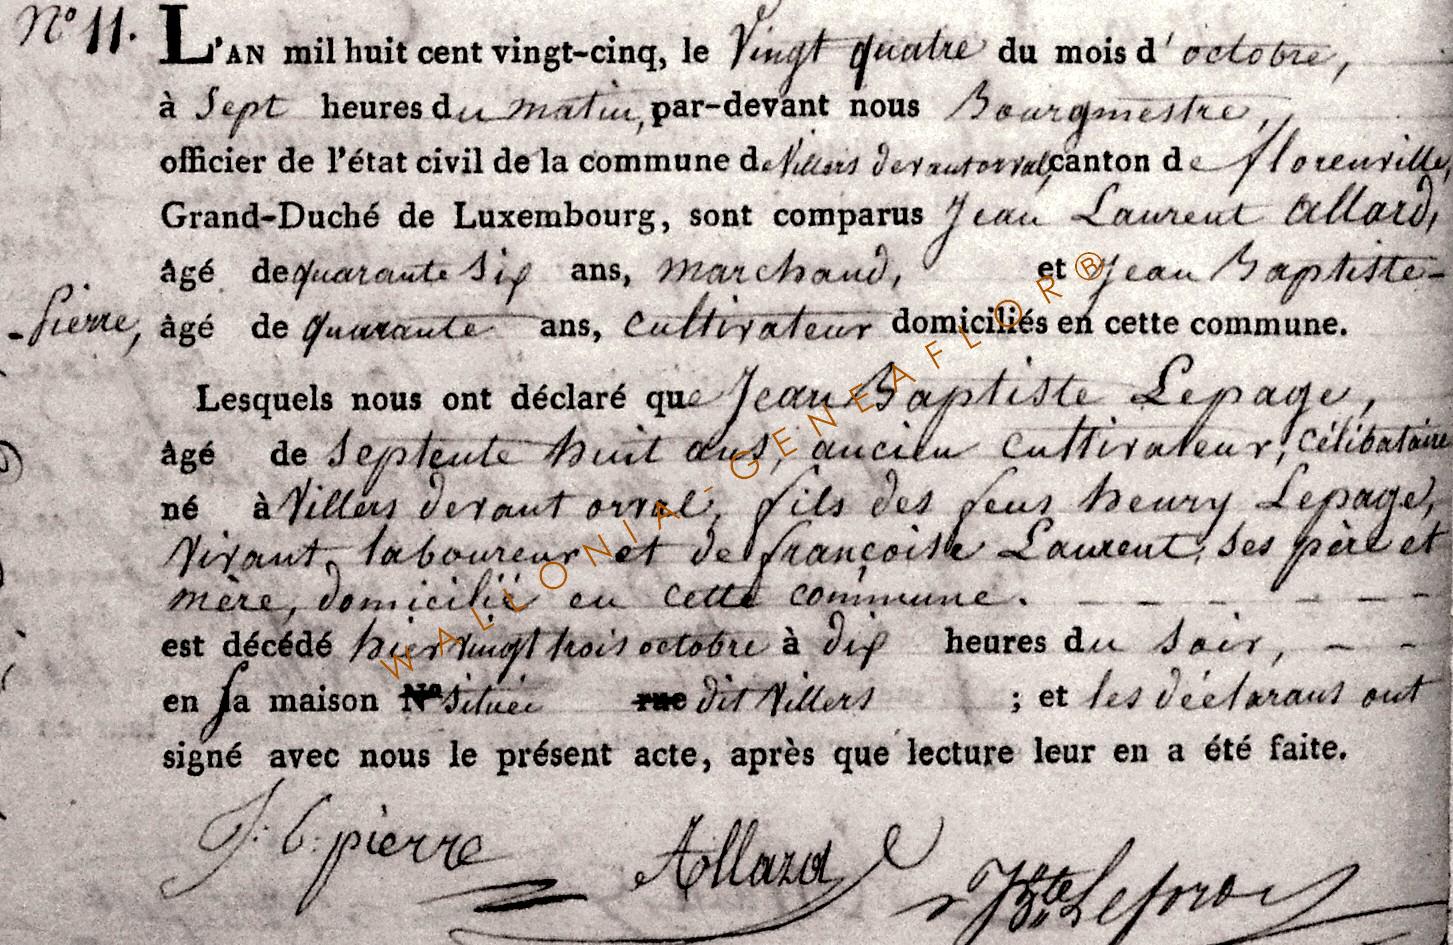 N° 11. L'AN mil huit cent vingt-cinq, le Vingt quatre du mois d'octobre,
à Sept heures du matin, par-devant nous Bourgmestre,
officier de l'état civil de la commune de Villers devant orval, canton de florenville,
Grand-Duché de Luxembourg, sont comparus Jean Laurent Allard,
âgé de quarante Six ans, marchand, et Jean Baptiste-
-Pierre, âgé de quarante ans, Cultivateur domiciliés en cette commune.
Lesquels nous ont déclaré que Jean Baptiste Lepage,
âgé de Septente huit ans, ancien Cultivateur, Célibataire
né à Villers devant orval, fils des feus henry Lepage,
Vivant, laboureur et de françoise Laurent, Ses père et
mère, domicilié en cette commune. - - - - - -
est décédé hier Vingt trois octobre à dix heures du Soir, - -
en sa maison N° Située rue dit Villers ; et les déclarans ont
signé avec nous le présent acte, après que lecture leur en a été faite.
J: b: pierre Allard JBte
WALLONIA - GENEAFLOR®